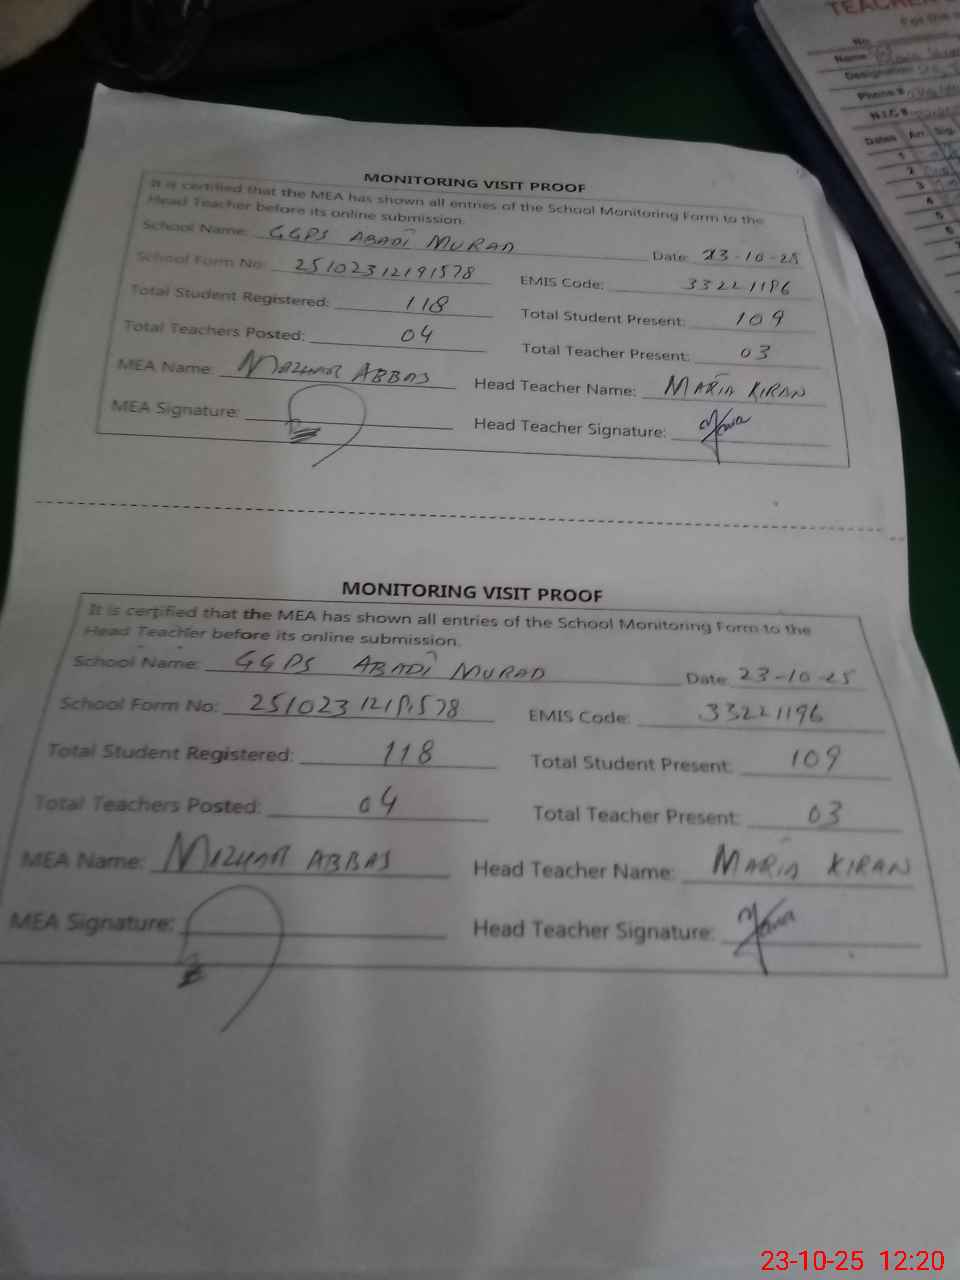 MONITORING VISIT PROOF
It is certified that the MEA has shown all entries of the School Monitoring Form to the
Head Teacher before its online submission.
School Name: GGPS ABADI MURAD Date: 23-10-25
School Form No: 25102312191578 EMIS Code: 33221196
Total Student Registered: 118 Total Student Present: 109
Total Teachers Posted: 04 Total Teacher Present: 03
MEA Name: MAZHAR ABBAS Head Teacher Name: MARIA KIRAN
MEA Signature: Head Teacher Signature:
MONITORING VISIT PROOF
It is certified that the MEA has shown all entries of the School Monitoring Form to the
Head Teacher before its online submission.
School Name: GGPS ABADI MURAD Date: 23-10-25
School Form No: 25102312191578 EMIS Code: 33221196
Total Student Registered: 118 Total Student Present: 109
Total Teachers Posted: 04 Total Teacher Present: 03
MEA Name: MAZHAR ABBAS Head Teacher Name: MARIA KIRAN
MEA Signature: Head Teacher Signature:
TEACHER
For the
No.
Name
Designation
Phone #
N.I.C #
Dates Arr Sig.
1
2
3
4
5
6
23-10-25 12:20